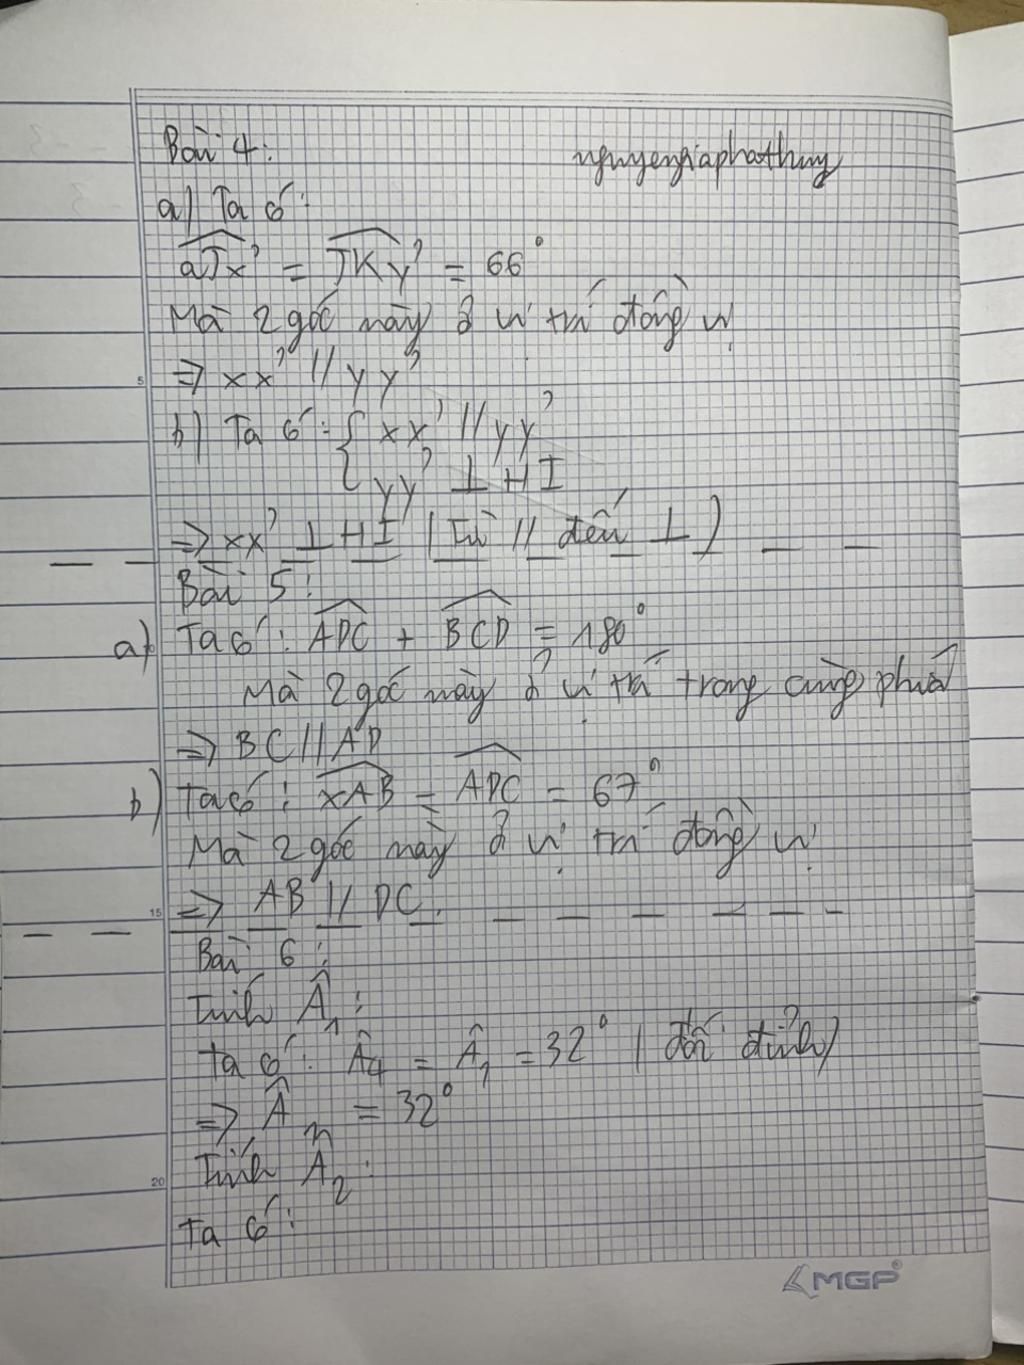 Bài 4:
nguyengiaphathuy
a) Ta có:
aJx' = JKy' = 66°
Mà 2 góc này ở vị trí đồng vị
=> xx' // yy'
b) Ta có: { xx' // yy'
yy' ⊥ HI
=> xx' ⊥ HI (Từ // đến ⊥)
Bài 5:
a) Ta có: ADC + BCD = 180°
Mà 2 góc này ở vị trí trong cùng phía
=> BC // AD
b) Ta có: xAB = ADC = 67°
Mà 2 góc này ở vị trí đồng vị
=> AB // DC.
15
Bài 6:
Tính Â₁:
Ta có: Â₄ = Â₁ = 32° (đối đỉnh)
=> Â₁ = 32°
Tính Â₂:
20
Ta có:
MGP®
5